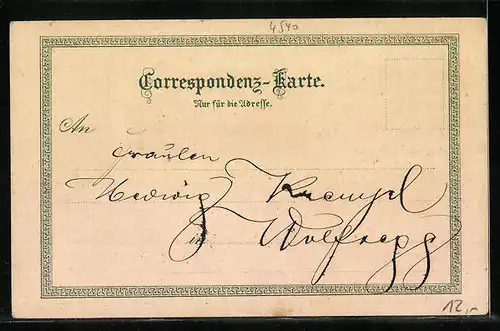 4540
Correspondenz-Karte.
Nur für die Adresse.
An
Fräulein
Hedwig Krempl
in Wolfsegg
12,-